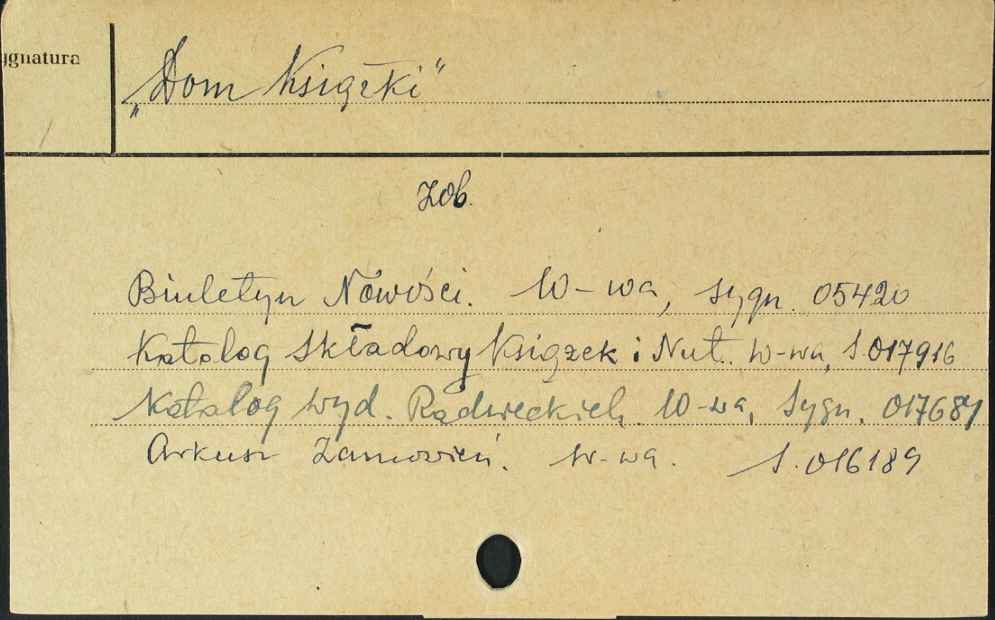 ygnatura
„Dom Książki"
zob.
Biuletyn Nowości. W-wa, sygn. 05420
Katalog Składowy Książek i Nut. W-wa, S. 017916
Katalog wyd. Radzieckich. W-wa, Sygn. 017681
Arkusz Zamówień. W-wa. S. 016189